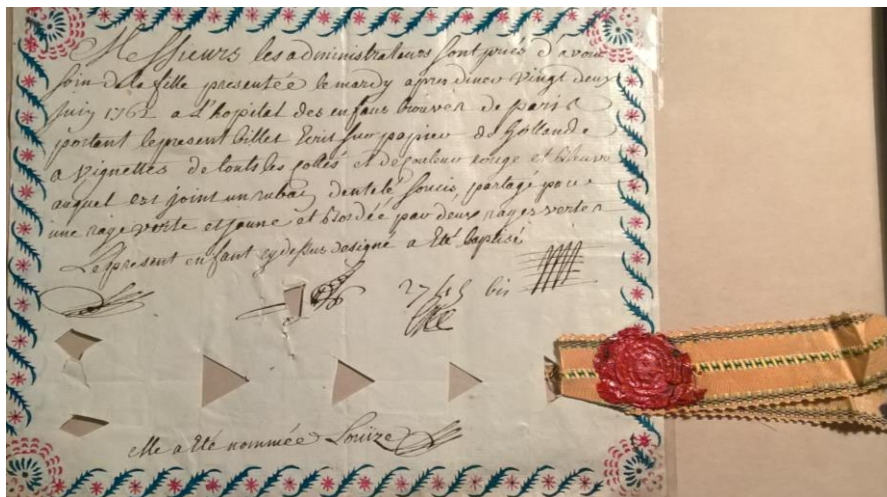 Messieurs les administrateurs sont priés d'avoir
soin de la fille presentée le mardy apres diner vingt deux
juin 1762 a l'hopital des enfans trouvez de paris
portant le present billet Ecrit sur papier de hollande
a vignettes de touts les cottés et de couleur rouge et bleuve
auquel est joint un ruban dentelé soucis, partagé par
une raye verte et jaune et bordée par deux rayes vertes
Le present enfant cy dessus designé a Eté baptisé
2745 bis
elle a Eté nommée Louïze